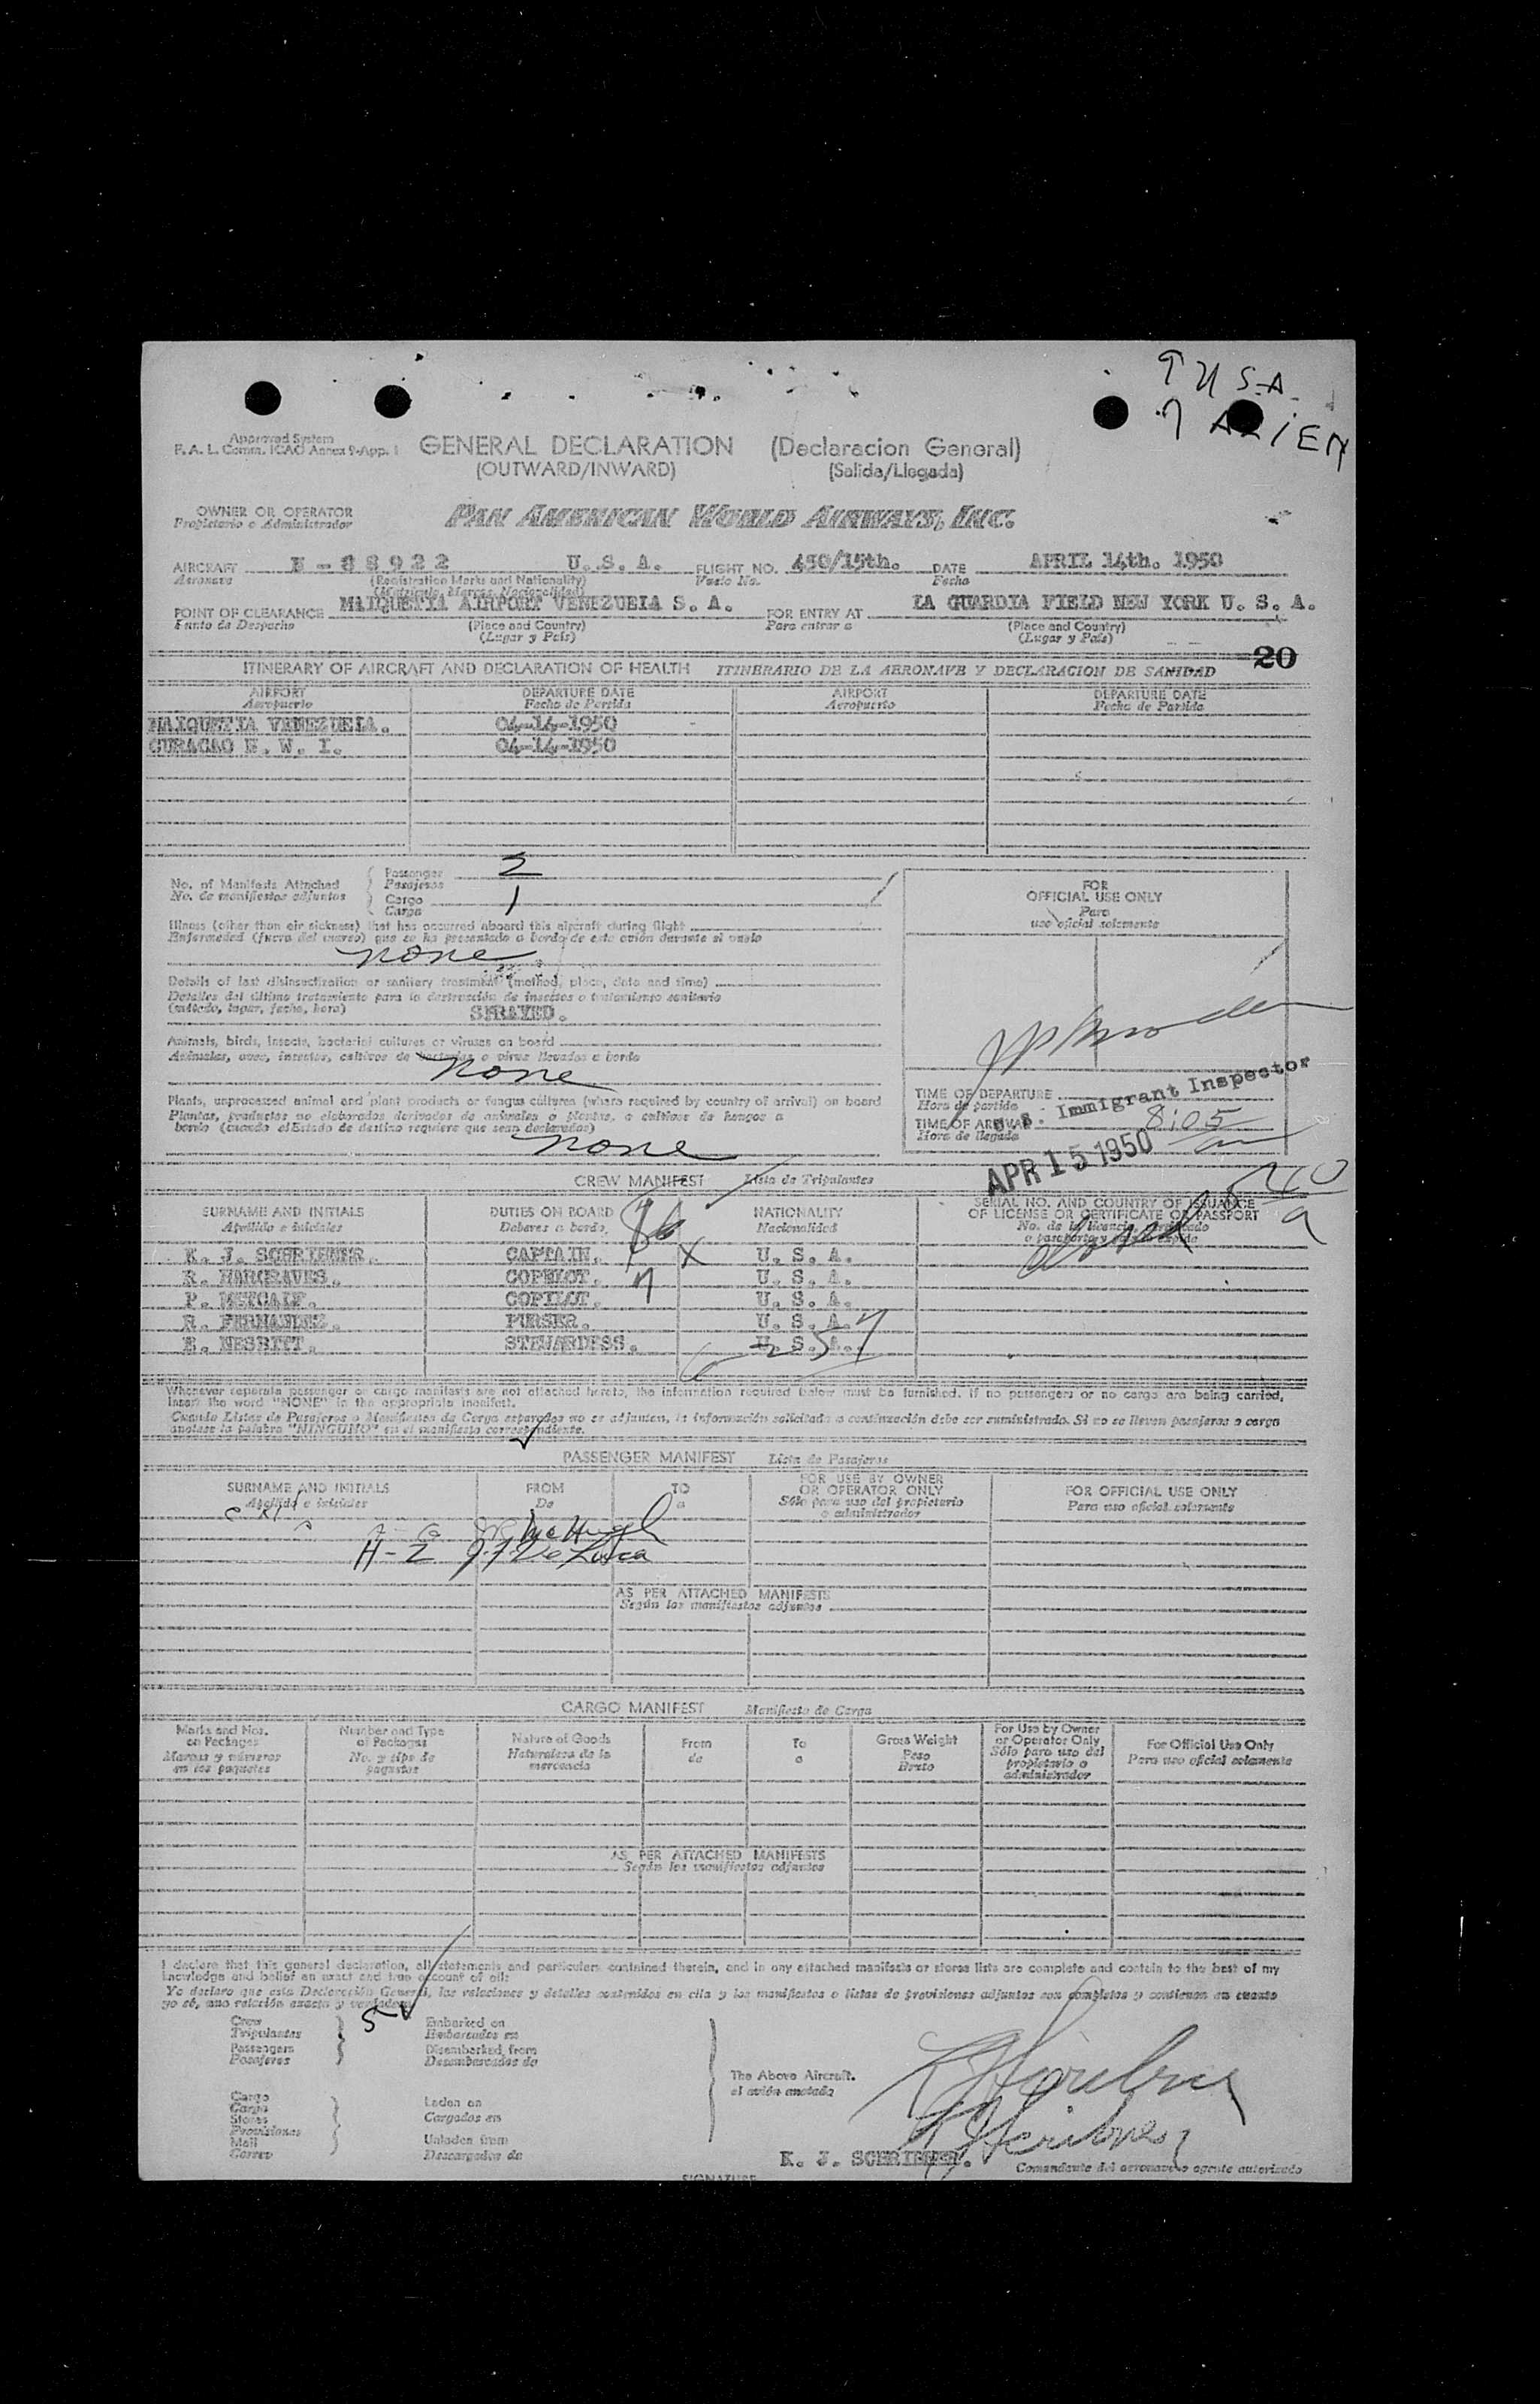 9 U.S.A.
7 ALIEN
Approved System
F. A. L. Comm. ICAO Annex 9-App. 1
GENERAL DECLARATION (Declaracion General)
(OUTWARD/INWARD) (Salida/Llegada)
OWNER OR OPERATOR
Propietario o Administrador
PAN AMERICAN WORLD AIRWAYS, INC.
AIRCRAFT N-88922 U.S.A. FLIGHT NO. 450/15th. DATE APRIL 14th. 1950
Aeronave (Registration Marks and Nationality) Vuelo No. Fecha
(Matricula, Marcas, Nacionalidad)
POINT OF CLEARANCE MAIQUETIA AIRPORT VENEZUELA S. A. FOR ENTRY AT LA GUARDIA FIELD NEW YORK U. S. A.
Punto de Despacho (Place and Country) Para entrar a (Place and Country)
(Lugar y País) (Lugar y País)
20
ITINERARY OF AIRCRAFT AND DECLARATION OF HEALTH ITINERARIO DE LA AERONAVE Y DECLARACION DE SANIDAD
AIRPORT DEPARTURE DATE AIRPORT DEPARTURE DATE
Aeropuerto Fecha de Partida Aeropuerto Fecha de Partida
MAIQUETIA VENEZUELA. 04-14-1950
CURACAO N. W. I. 04-14-1950
No. of Manifests Attached
No. de manifiestos adjuntos
Passenger 2
Pasajeros
Cargo 1
Carga
Illness (other than air sickness) that has occurred aboard this aircraft during flight
Enfermedad (fuera del mareo) que se ha presentado a bordo de este avión durante el vuelo
none
Details of last disinsectization or sanitary treatment (method, place, date and time)
Detalles del último tratamiento para la destrucción de insectos o tratamiento sanitario
(método, lugar, fecha, hora) SPRAYED.
Animals, birds, insects, bacterial cultures or viruses on board
Animales, aves, insectos, cultivos de bacterias o virus llevados a bordo
none
Plants, unprocessed animal and plant products or fungus cultures (where required by country of arrival) on board
Plantas, productos no elaborados derivados de animales o plantas, o cultivos de hongos a
bordo (cuando el Estado de destino requiere que sean declarados)
none
FOR
OFFICIAL USE ONLY
Para
uso oficial solamente
TIME OF DEPARTURE
Hora de partida
U.S. Immigrant Inspector
TIME OF ARRIVAL 8:05
Hora de llegada am
APR 15 1950
CREW MANIFEST Lista de Tripulantes
SURNAME AND INITIALS DUTIES ON BOARD NATIONALITY SERIAL NO. AND COUNTRY OF ISSUANCE
OF LICENSE OR CERTIFICATE OR PASSPORT
Apellido e iniciales Deberes a bordo. Nacionalidad No. de la licencia, certificado
o pasaporte y país que expide
K. J. SCHRIENER. CAPTAIN. X U. S. A.
R. HARGRAVES. COPILOT. 7 U. S. A.
P. METCALF. COPILOT. U. S. A.
R. FERNANDEZ. PURSER. U. S. A.
B. NESBITT. STEWARDESS. U. S. A.
Whenever separate passenger or cargo manifests are not attached hereto, the information required below must be furnished. If no passengers or no cargo are being carried,
insert the word "NONE" in the appropriate manifest.
Cuando Listas de Pasajeros o Manifiestos de Carga separados no se adjunten, la información solicitada a continuación debe ser suministrada. Si no se llevan pasajeros o carga
anótese la palabra "NINGUNO" en el manifiesto correspondiente.
PASSENGER MANIFEST Lista de Pasajeros
SURNAME AND INITIALS FROM TO FOR USE BY OWNER
OR OPERATOR ONLY FOR OFFICIAL USE ONLY
Apellido e iniciales De a Sólo para uso del propietario
o administrador Para uso oficial solamente
McHugh
H-2 De Luca
AS PER ATTACHED MANIFESTS
Según los manifiestos adjuntos
CARGO MANIFEST Manifiesto de Carga
Marks and Nos.
on Packages
Marcas y números
en los paquetes
Number and Type
of Packages
No. y tipo de
paquetes
Nature of Goods
Naturaleza de la
mercancía
From
de
To
a
Gross Weight
Peso
Bruto
For Use by Owner
or Operator Only
Sólo para uso del
propietario o
administrador
For Official Use Only
Para uso oficial solamente
AS PER ATTACHED MANIFESTS
Según los manifiestos adjuntos
I declare that this general declaration, all statements and particulars contained therein, and in any attached manifests or stores lists are complete and contain to the best of my
knowledge and belief an exact and true account of all:
Yo declaro que esta Declaración General, las relaciones y detalles contenidos en ella y los manifiestos o listas de provisiones adjuntos son completos y contienen en cuanto
yo sé, una relación exacta y verdadera
Crew 5 Embarked on
Tripulantes Embarcados en
Passengers Disembarked from
Pasajeros Desembarcados de
The Above Aircraft.
el avión anotado
Cargo
Carga Laden on
Stores Cargados en
Provisiones
Mail Unladen from
Correo Descargados de
K. J. SCHRIENER.
Comandante del aeronave o agente autorizado
SIGNATURE